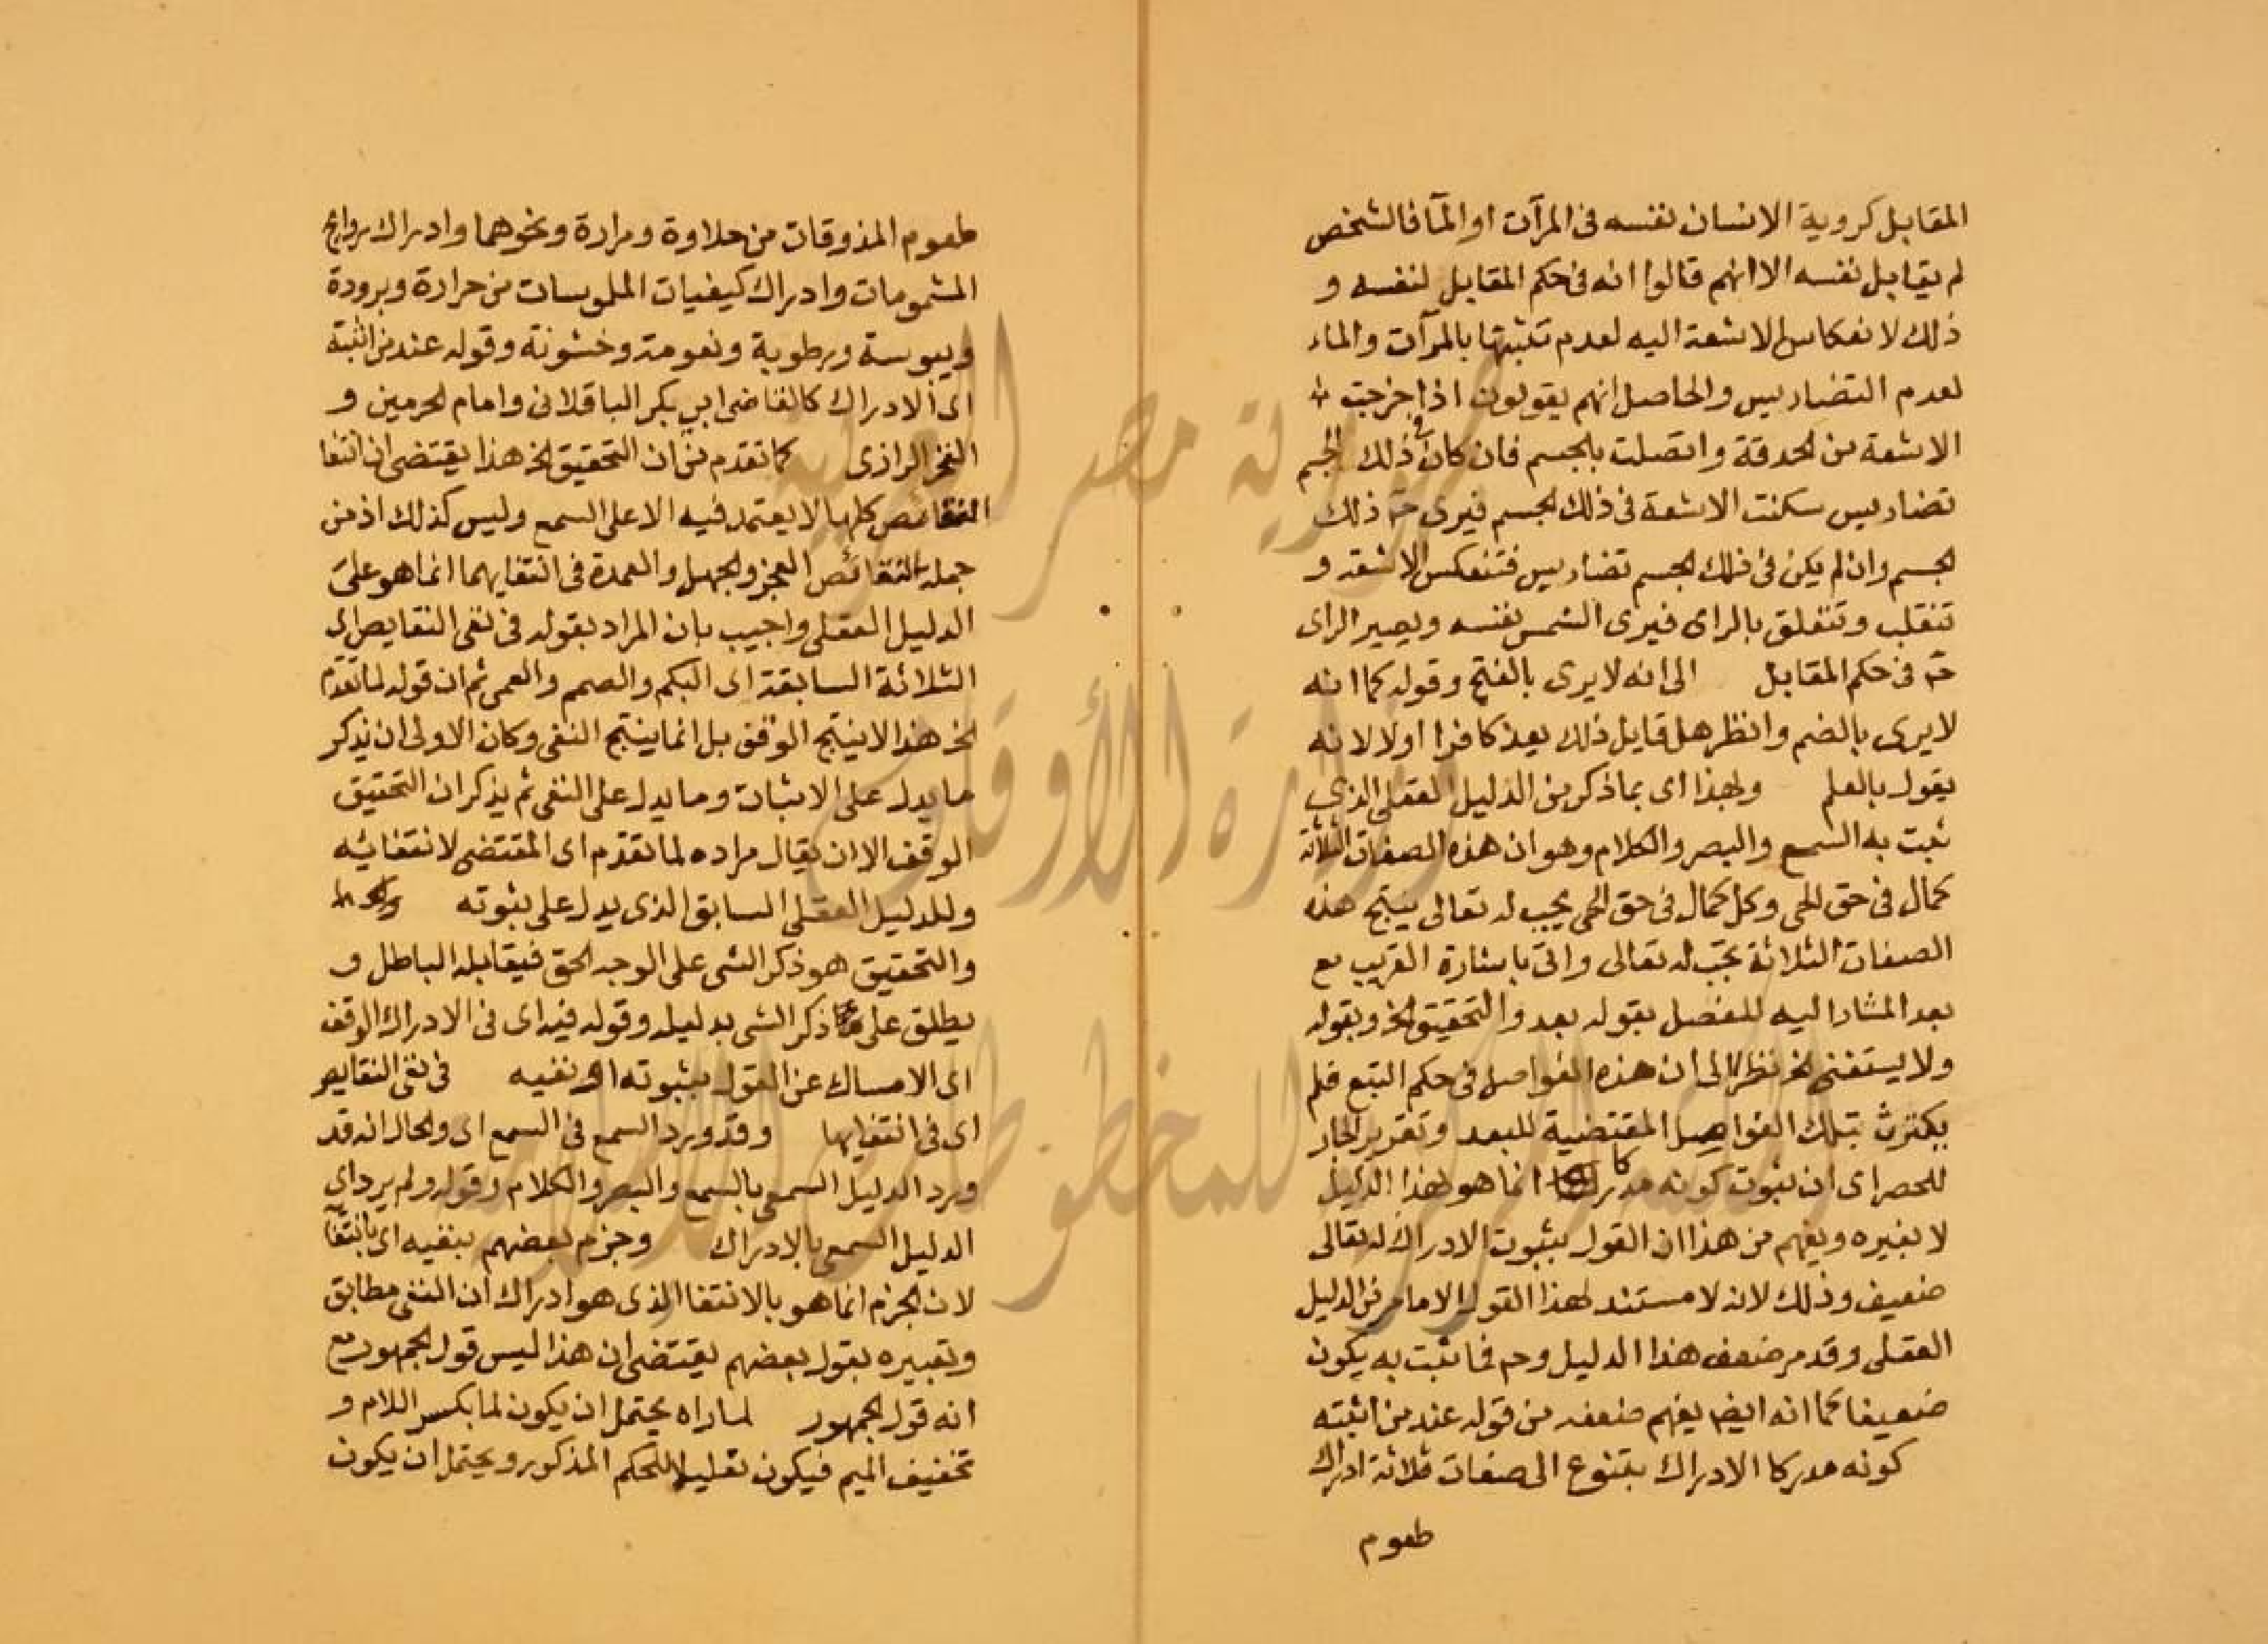 المقابل كروية الانسان نفسه فى المرآت او المآ فالشخص
لم يقابل نفسه الا انهم قالوا انه فى حكم المقابل لنفسه و
ذلك لانعكاس الاشعة اليه لعدم تشبثها بالمرآت والماء
لعدم التضاريس والحاصل انهم يقولون اذا خرجت
الاشعة من الحدقة واتصلت بالجسم فان كان فى ذلك الجسم
تضاريس سكنت الاشعة فى ذلك الجسم فيرى ح ذلك
الجسم وان لم يكن فى ذلك الجسم تضاريس فتنعكس الاشعة و
تنقلب وتتعلق بالراى فيرى الشمس نفسه ويصير الراى
ح فى حكم المقابل الى انه لا يرى بالفتح وقوله كما انه
لا يرى بالضم وانظر هل قايل ذلك يعد كافرا اولا لانه
يقول بالعلم ولهذا اى بما ذكر من الدليل العقلى الذى
ثبت به السمع والبصر والكلام وهو ان هذه الصفات الثلاثة
كمال فى حق الحى وكل كمال فى حق الحى يجب له تعالى ينتج هذه
الصفات الثلاثة تجب له تعالى واتى باشارة القريب مع
بعد المشار اليه للفصل بقوله بعد والتحقيق الخ وبقوله
ولا يستغنى الخ نظرا الى ان هذه الفواصل فى حكم التبع فلم
يكترث بتلك الفواصل المقتضية للبعد وتقرير الجار
للحصر اى ان ثبوت كونه مدركا انما هو لهذا الدليل
لا بغيره ويفهم من هذا ان القول بثبوت الادراك له تعالى
ضعيف وذلك لانه لا مستند لهذا القول الا ما مر من الدليل
العقلى وقد مر ضعف هذا الدليل وح فما ثبت به يكون
ضعيفا كما انه ايض يفهم ضعفه من قوله عند من اثبته
كونه مدركا الادراك يتنوع الى صفات ثلاثة ادراك
طعوم
طعوم المذوقات من حلاوة ومرارة ونحوهما وادراك روايح
المشمومات وادراك كيفيات الملموسات من حرارة وبرودة
ويبوسة ورطوبة ونعومة وخشونة وقوله عند من اثبته
اى الادراك كالقاضى ابى بكر الباقلانى وامام الحرمين و
الفخر الرازى كما تقدم من ان التحقيق الخ هذا يقتضى ان انتفا
النقائص كلها لا يعتمد فيه الا على السمع وليس كذلك اذ من
جملة النقائص العجز والجهل والعمدة فى انتفايهما انما هو على
الدليل العقلى واجيب بان المراد بقوله فى نفى النقايص اى
الثلاثة السابقة اى البكم والصمم والعمى ثم ان قوله لما تقدم
الخ هذا لا ينتج الوقف بل انما ينتج النفى وكان الاولى ان يذكر
ما يدل على الاثبات وما يدل على النفى ثم يذكر ان التحقيق
الوقف الا ان يقال مراده لما تقدم اى المقتضى لانتفائه
وللدليل العقلى السابق الذى يدل على ثبوته
والتحقيق هو ذكر الشى على الوجه الحق فيقابله الباطل و
يطلق على ذكر الشى بدليله وقوله فيه اى فى الادراك الوقف
اى الامساك عن القول بثبوته او نفيه فى نفى النقايص
اى فى انتفايها وقد ورد السمع فى السمع اى والحال انه قد
ورد الدليل السمعى بالسمع والبصر والكلام وقوله ولم يرد اى
الدليل السمعى بالادراك وجزم بعضهم بنفيه اى بانتفآ
لان الجزم انما هو بالانتفا الذى هو ادراك ان النفى مطابق
وتعبيره بقول بعضهم يقتضى ان هذا ليس قول الجمهور مع
انه قول الجمهور لما راه يحتمل ان يكون لما بكسر اللام و
تخفيف الميم فيكون تعليلا للحكم المذكور ويحتمل ان يكون
جمهورية مصر العربية
وزارة الأوقاف